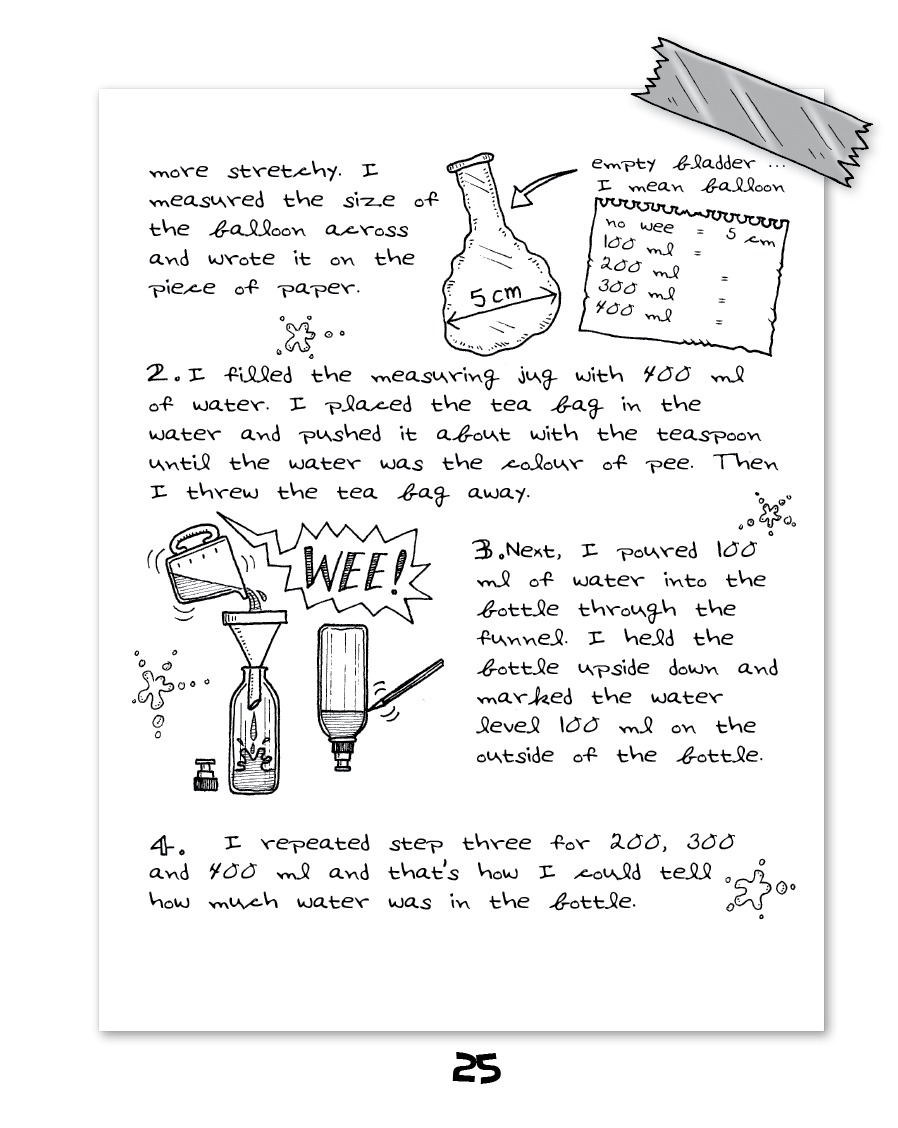 more stretchy. I
measured the size of
the balloon across
and wrote it on the
piece of paper.
5 cm
empty bladder ...
I mean balloon
no wee = 5 cm
100 ml =
200 ml =
300 ml =
400 ml =
2. I filled the measuring jug with 400 ml
of water. I placed the tea bag in the
water and pushed it about with the teaspoon
until the water was the colour of pee. Then
I threw the tea bag away.
WEE!
3. Next, I poured 100
ml of water into the
bottle through the
funnel. I held the
bottle upside down and
marked the water
level 100 ml on the
outside of the bottle.
4. I repeated step three for 200, 300
and 400 ml and that's how I could tell
how much water was in the bottle.
25